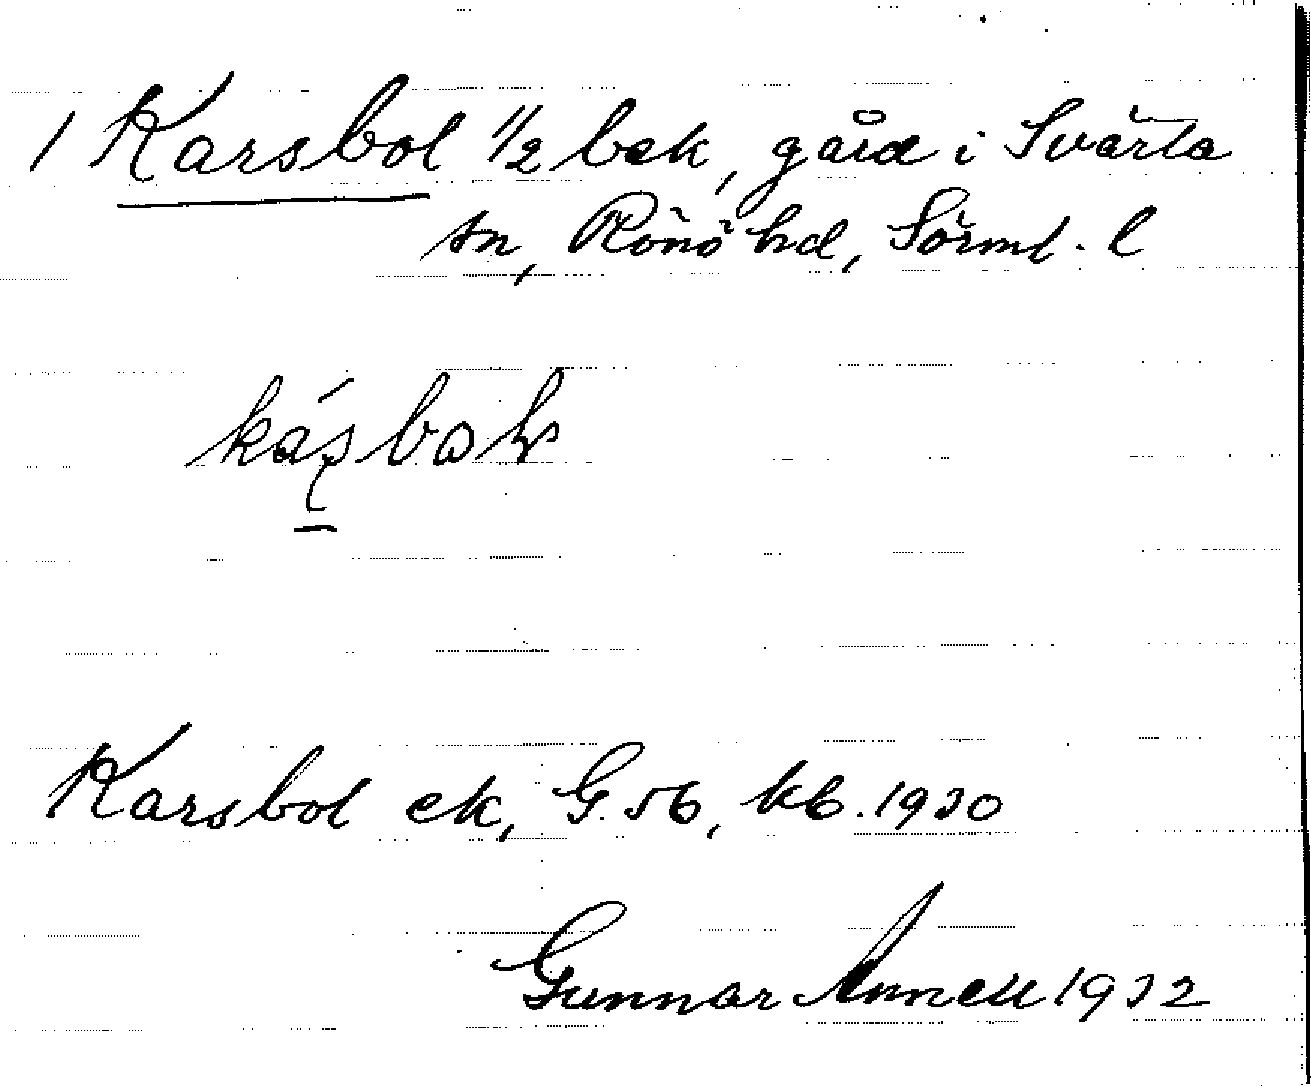 1 Karsbol 1/2 bek, gård i Svärta
sn, Rönö hd, Sörml. l
Karsbol ek, G. 56, kb. 1930
Gunnar Annell 1932